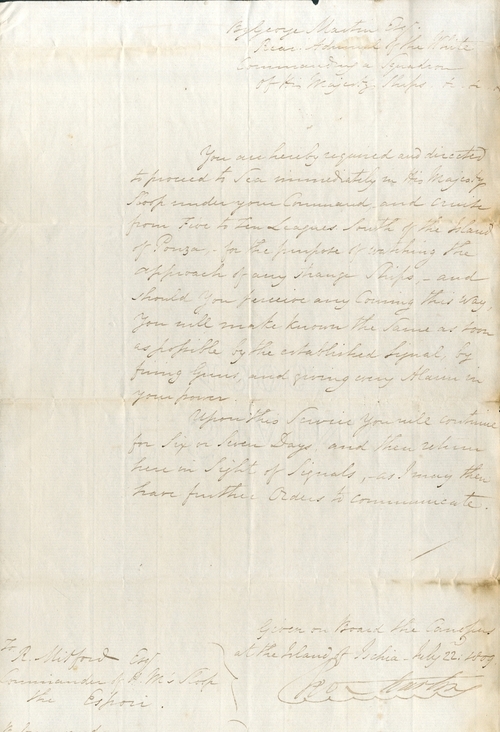 By George Martin Esq.
Rear Admiral of the White
Commanding a Squadron
of His Majestys Ships &c &c
You are hereby required and directed
to proceed to Sea immediately in His Majestys
Sloop under your Command, and cruise
from Five to Ten Leagues South of the Island
of Ponza, for the purpose of watching the
approach of any strange Ships, - and
should You perceive any Coming this way,
You will make known the Same as soon
as possible by the established Signal, by
firing Guns, and giving every Alarm in
your power.
Upon this Service You will continue
for Six or Seven Days, and then return
here in Sight of Signals, - as I may then
have further Orders to communicate.
Given on Board the Canopus
at the Island of Ischia July 22. 1809
Geo Martin
To
R. Mitford Esqr
Commander of H M's Sloop
the Espoir.